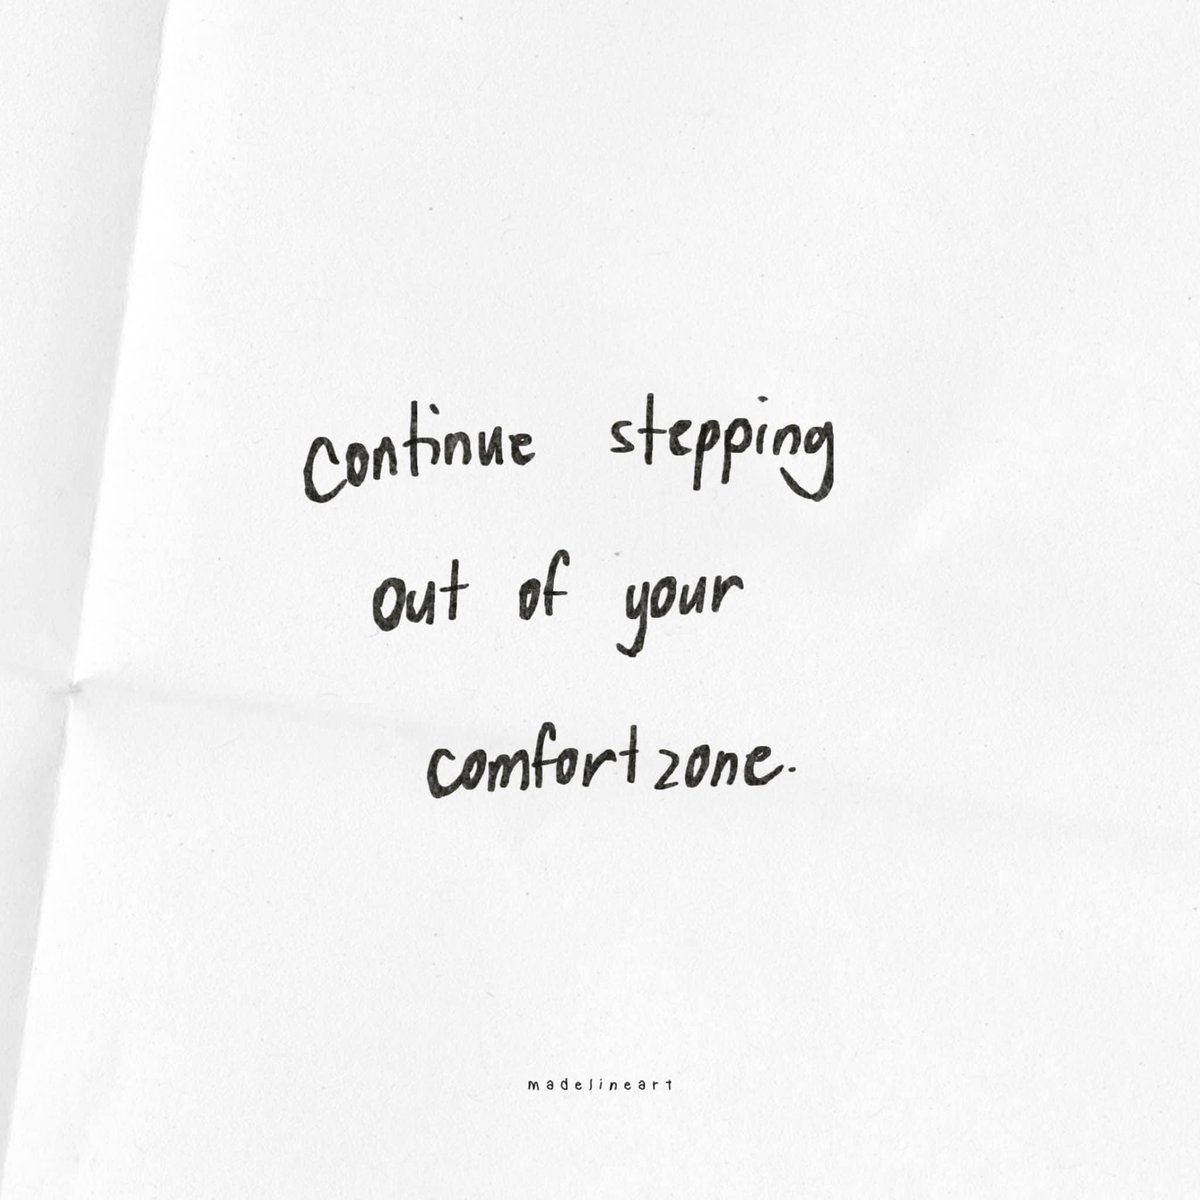 continue stepping
out of your
comfort zone.
madelineart